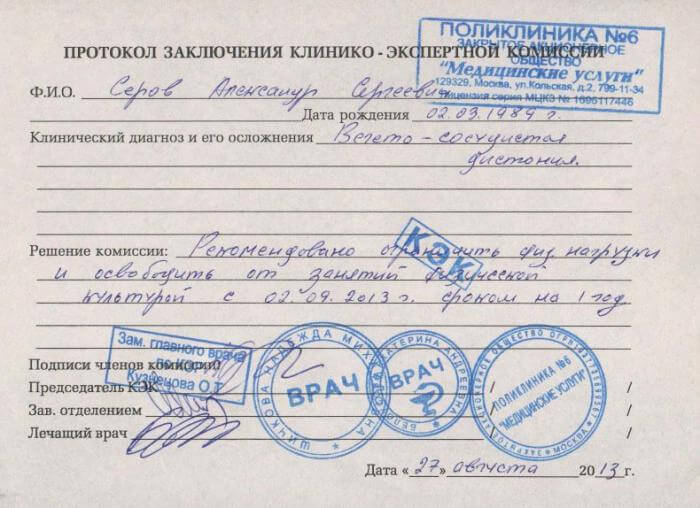 ПОЛИКЛИНИКА №6
ЗАКРЫТОЕ АКЦИОНЕРНОЕ
ОБЩЕСТВО
"Медицинские услуги"
129329, Москва, ул.Кольская, д.2, 799-11-34
Лицензия серия МЦКЗ № 1695117446
ПРОТОКОЛ ЗАКЛЮЧЕНИЯ КЛИНИКО - ЭКСПЕРТНОЙ КОМИССИИ
Ф.И.О. Серов Александр Сергеевич
Дата рождения 02.03.1989 г.
Клинический диагноз и его осложнения Вегето-сосудистая
дистония.
КЭК
Решение комиссии: Рекомендовано ограничить физ. нагрузки
и освободить от занятий физической
культурой с 02.09.2013 г. сроком на 1 год
Зам. главного врача
по КЭР
Кузнецова О.Т.
Подписи членов комиссии:
Председатель КЭК / /
Зав. отделением / /
Лечащий врач / /
ШИЧКОВА НАДЕЖДА МИХАЙЛОВНА
ВРАЧ
ЕКАТЕРИНА АНДРЕЕВНА
ВРАЧ
ЗАКРЫТОЕ АКЦИОНЕРНОЕ ОБЩЕСТВО
МОСКВА
ПОЛИКЛИНИКА №6
"МЕДИЦИНСКИЕ УСЛУГИ"
Дата «27» августа 2013 г.